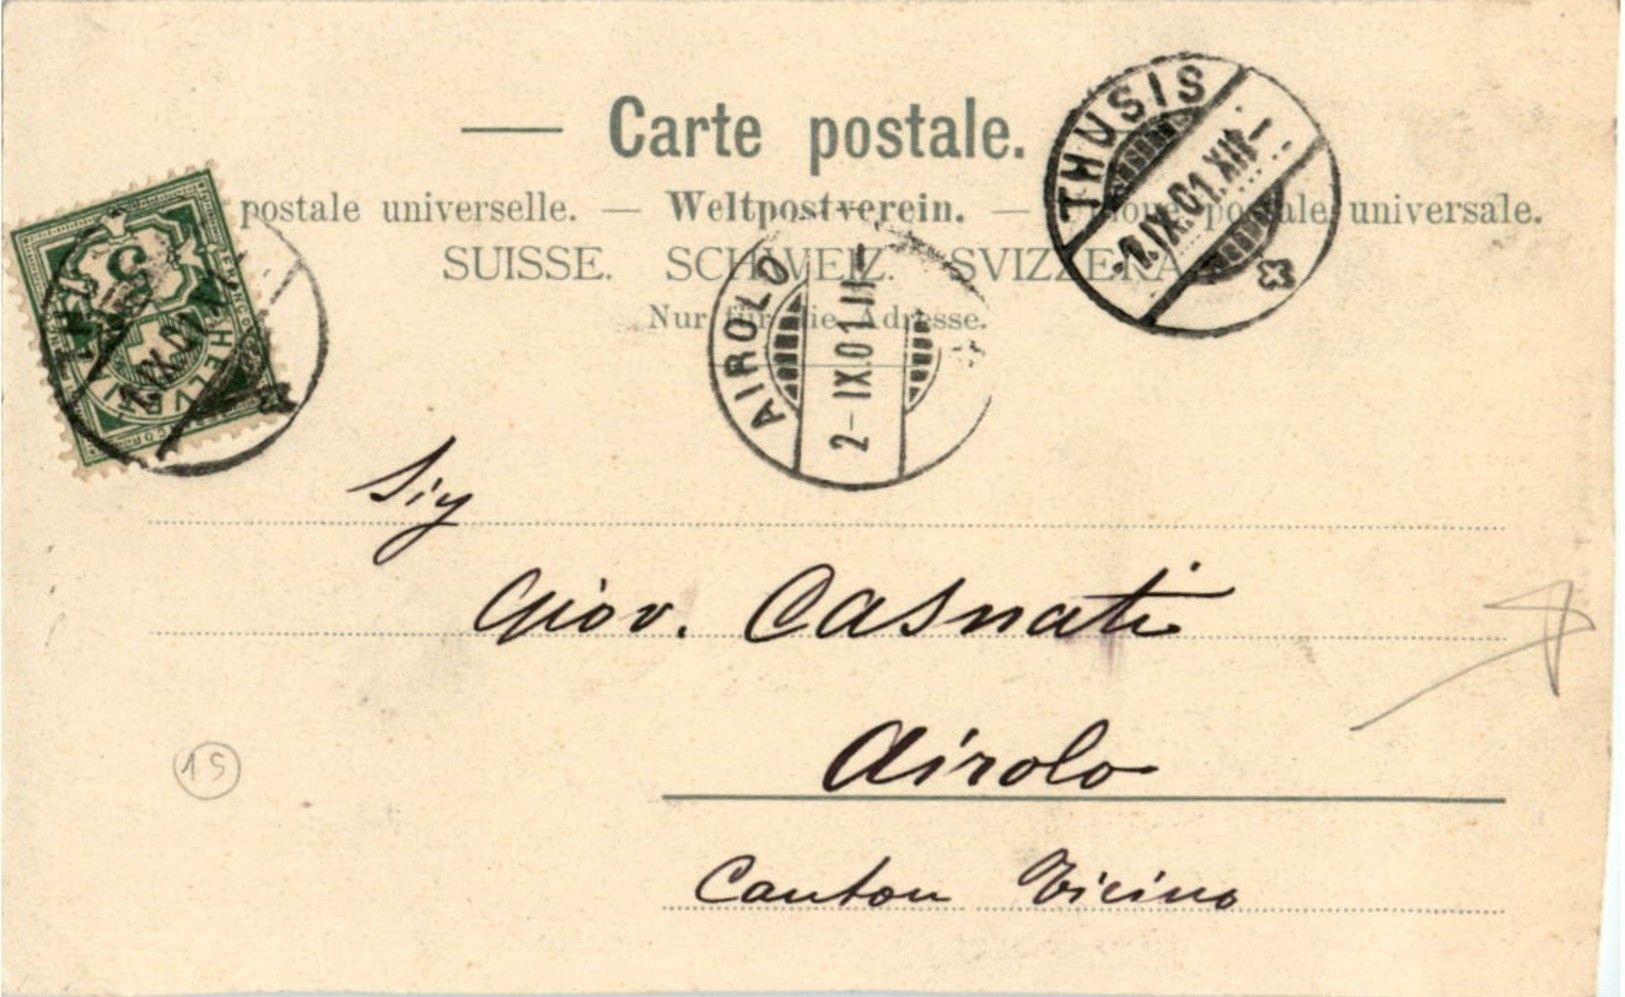 Carte postale.
postale universelle. — Weltpostverein. — postale universale.
SUISSE. SCHWEIZ. SVIZZERA
Nur für die Adresse.
THUSIS
1.IX.01.XII—
AIROLO
2—IX.01 11—
HELVETIA
5
1.IX.01
Sig
Giov. Casnati
Airolo
Canton Ticino
15